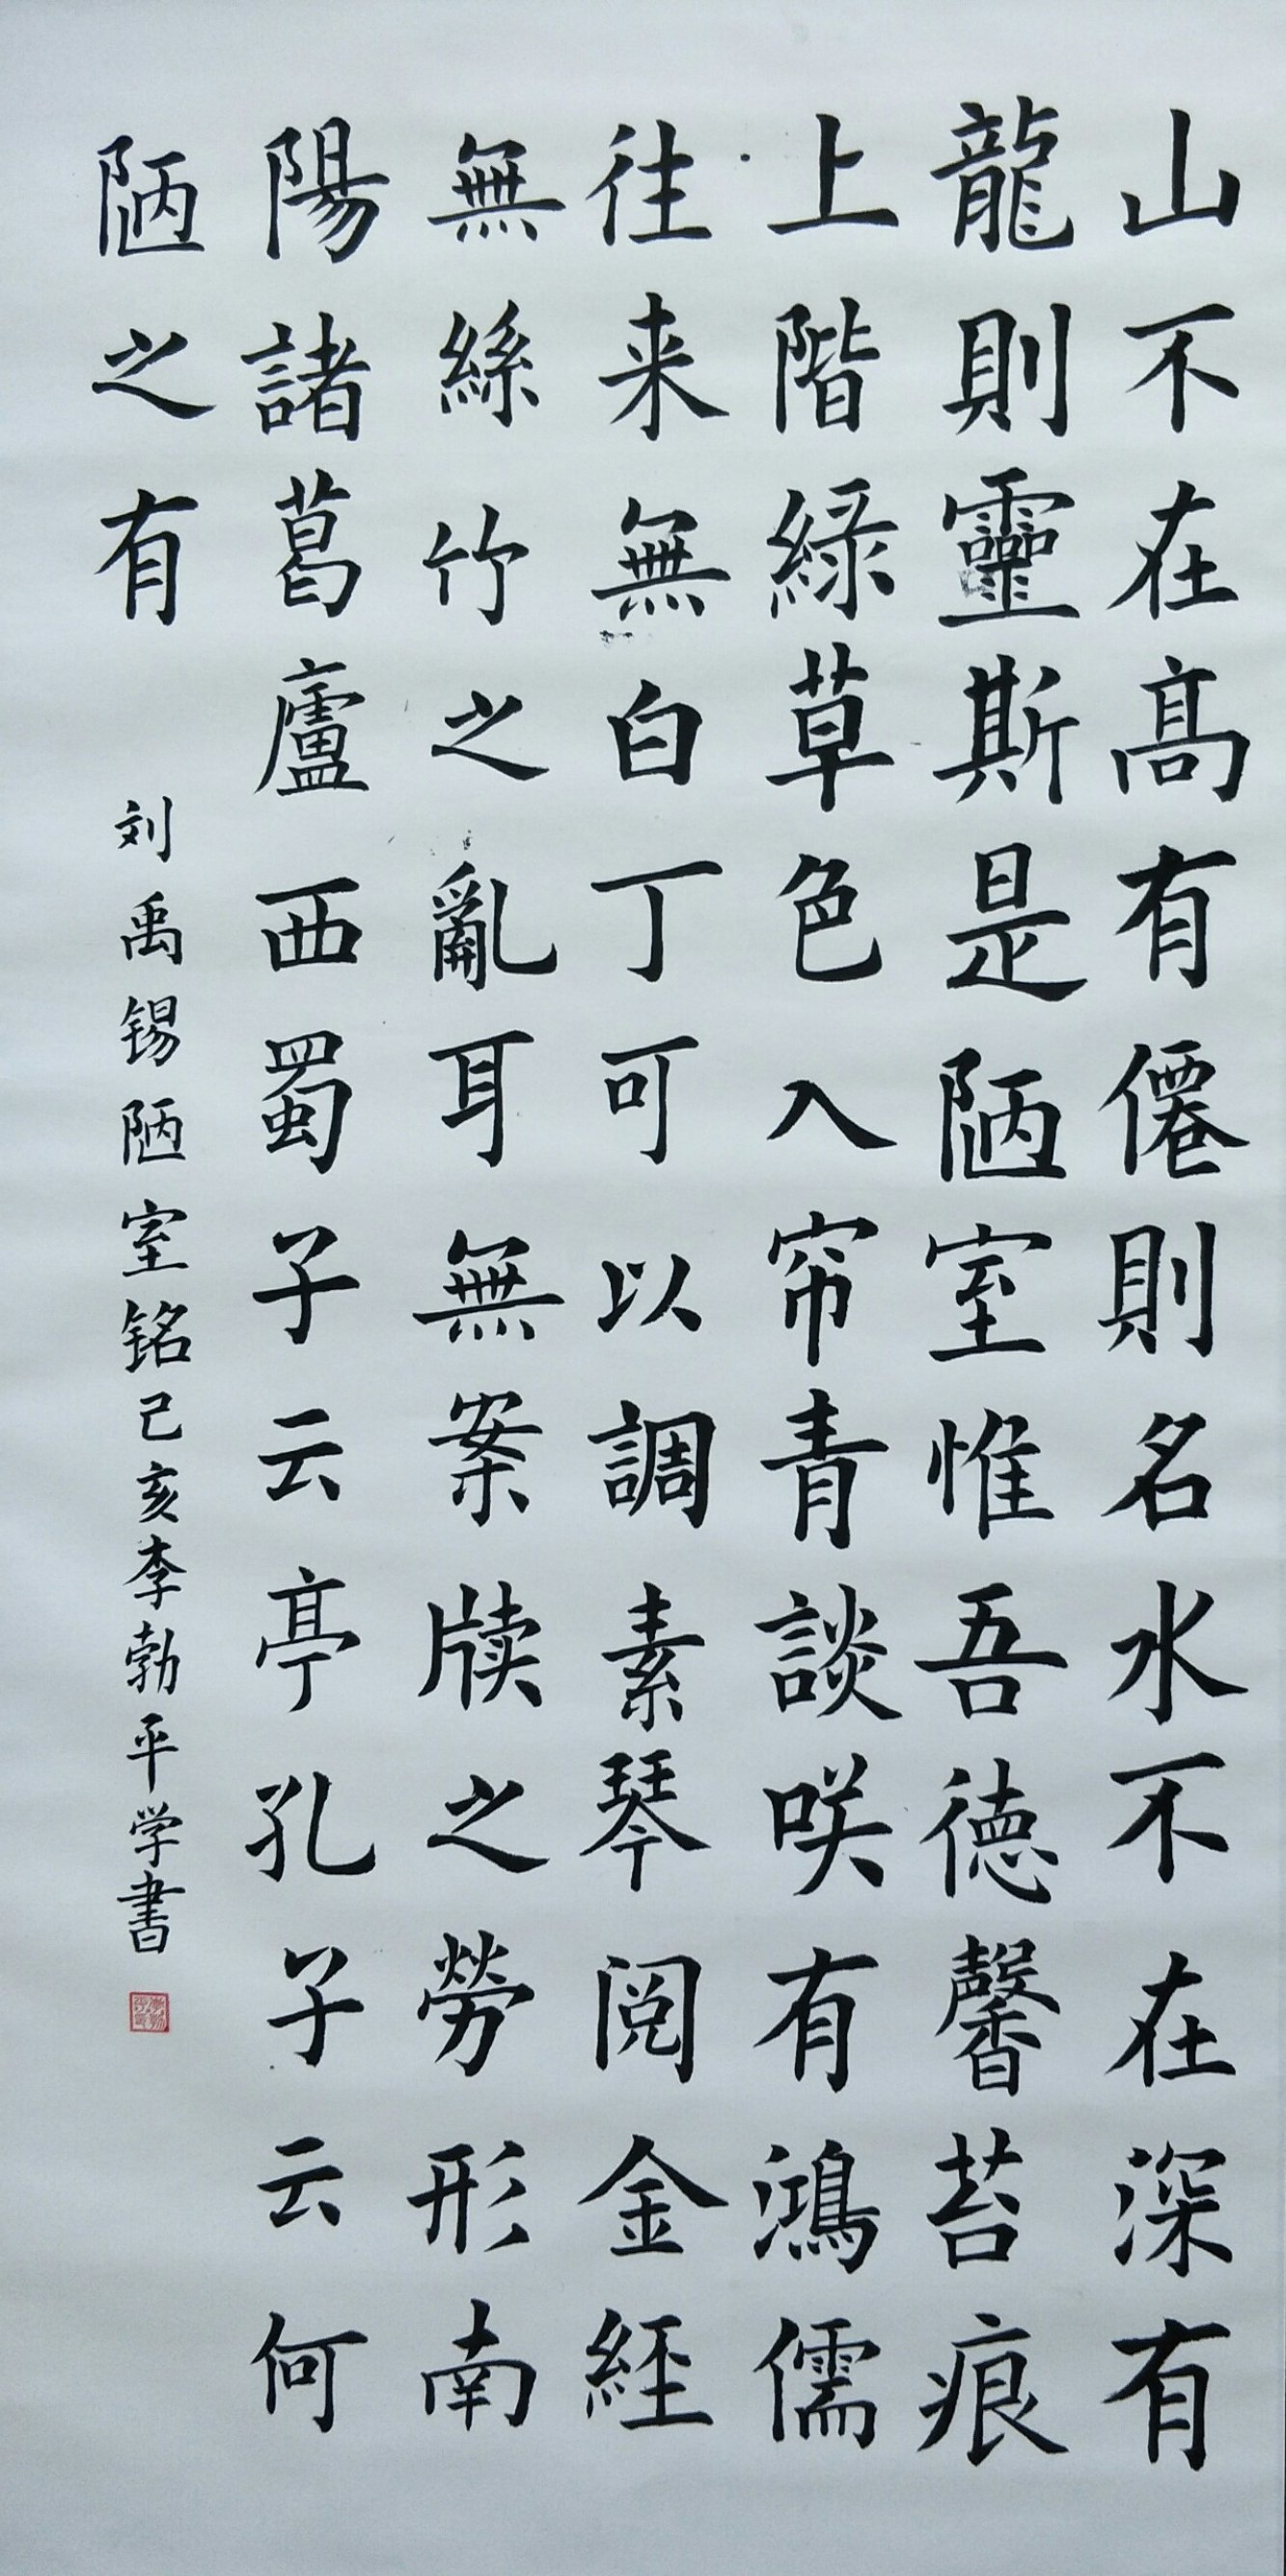 山不在高有僊則名水不在深有
龍則靈斯是陋室惟吾德馨苔痕
上階綠草色入帘青談咲有鴻儒
往来無白丁可以調素琴閱金經
無絲竹之亂耳無案牍之勞形南
陽諸葛廬西蜀子云亭孔子云何
陋之有
刘禹锡陋室铭己亥李勃平学書